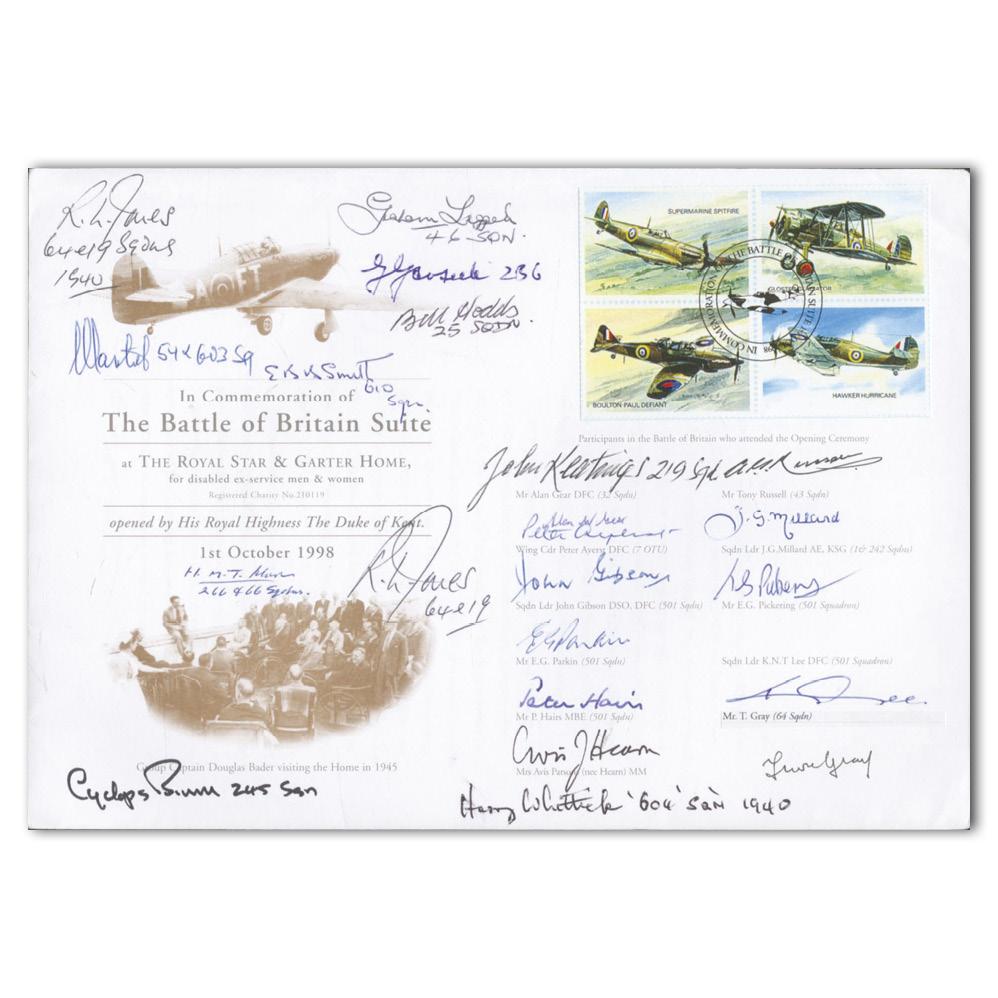 R. L. Jones
64 & 19 Sqdns
1940
Graham Leggett
46 SQN.
236
Bill Hodds
25 SQDN.
54 & 603 Sq
E B B Smith
610
Sqn.
In Commemoration of
The Battle of Britain Suite
at THE ROYAL STAR & GARTER HOME,
for disabled ex-service men & women
Registered Charity No.210119
opened by His Royal Highness The Duke of Kent.
1st October 1998
H. M. T.
266 & 66 Sqdns.
R. L. Jones
64 & 19
Group Captain Douglas Bader visiting the Home in 1945
Cyclops Brown 245 Sqn
SUPERMARINE SPITFIRE
GLOSTER GLADIATOR
BOULTON PAUL DEFIANT
HAWKER HURRICANE
IN COMMEMORATION THE BATTLE
Participants in the Battle of Britain who attended the Opening Ceremony
John Keatings 219 Sqd
Mr Alan Gear DFC (32 Sqdn)
Mr Tony Russell (43 Sqdn)
Alan W Gear
Peter Ayerst
J. G. Millard
Wing Cdr Peter Ayerst DFC (7 OTU)
Sqdn Ldr J.G.Millard AE, KSG (1& 242 Sqdns)
John Gibson
Sqdn Ldr John Gibson DSO, DFC (501 Sqdn)
Mr E.G. Pickering (501 Squadron)
E G Parkin
Mr E.G. Parkin (501 Sqdn)
Sqdn Ldr K.N.T Lee DFC (501 Squadron)
Peter Hairs
Mr P. Hairs MBE (501 Sqdn)
Mr. T. Gray (64 Sqdn)
Avis J Hearn
Mrs Avis Parsons (nee Hearn) MM
Trevor Gray
Harry Whittick '604' SQN 1940